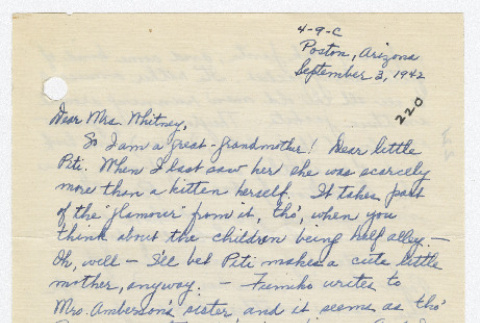 4-9-C
Poston, Arizona
September 3, 1942
220
Dear Mrs. Whitney,
So I am a great-grandmother! Dear little
Piti. When I last saw her she was scarcely
more than a kitten herself. It takes part
of the "glamour" from it, tho', when you
think about the children being half alley. —
Oh, well — I'll bet Piti makes a cute little
mother, anyway. — Fumiko writes to
Mrs. Amberson's sister and it seems as tho'